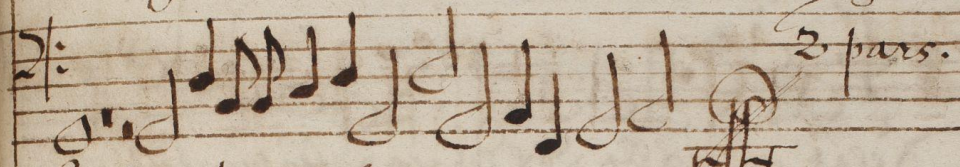 2 pars.